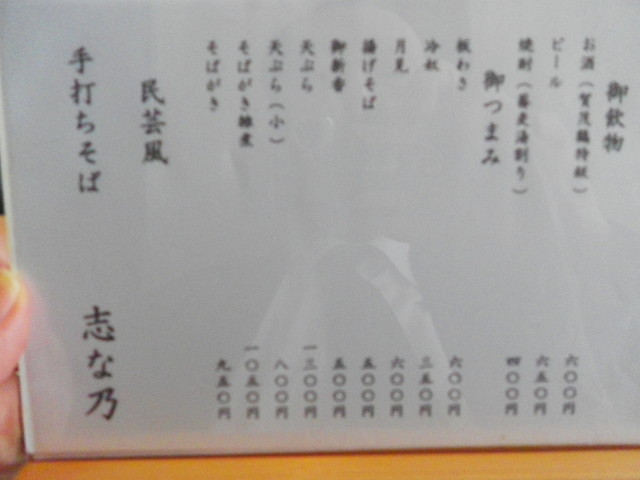 御飲物
お酒(賀茂鶴特級) 六〇〇円
ビール 六五〇円
焼酎(蕎麦湯割り) 四〇〇円
御つまみ
板わさ 六〇〇円
冷奴 三五〇円
月見 六〇〇円
揚げそば 五〇〇円
御新香 五〇〇円
天ぷら 一三〇〇円
天ぷら(小) 八〇〇円
そばがき雑煮 一〇五〇円
そばがき 九五〇円
民芸風
手打ちそば 志な乃